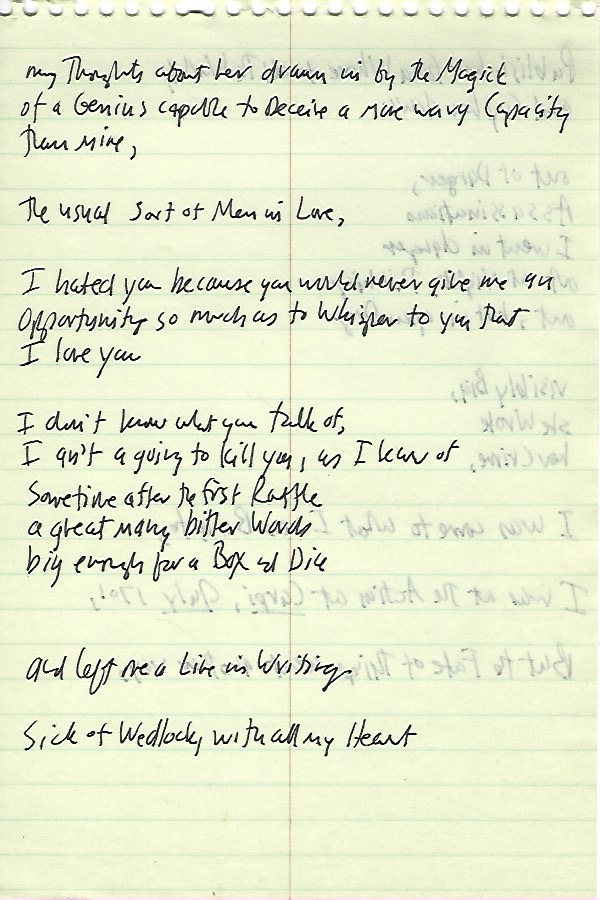 my Thoughts about her drawn in by the Magick
of a Genius capable to Deceive a more wary Capacity
Than mine,
The usual Sort of Men in Love,
I hated you because you would never give me an
Opportunity so much as to Whisper to you that
I love you
I don't know what you talk of,
I an't a going to kill you, as I know of
Sometime after the first Raffle
a great many bitter Words
big enough for a Box and Dice
and left me a Line in Writing
Sick of Wedlock, with all my Heart